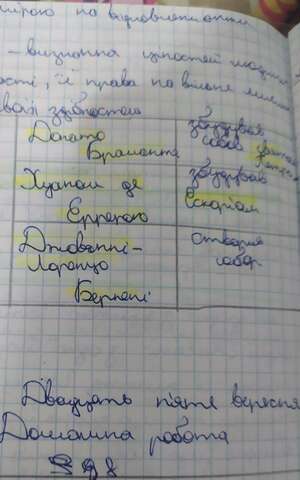 мірою на відновлення
– визнання цінностей людини
ості, її права на вільне
своїх здібностей
Донато Браманте збудував собор
Хуаном де Еррерою збудував Ескоріал
Джованні-Лоренцо Берніні створив собор
Двадцять п'яте вересня
Домашня робота